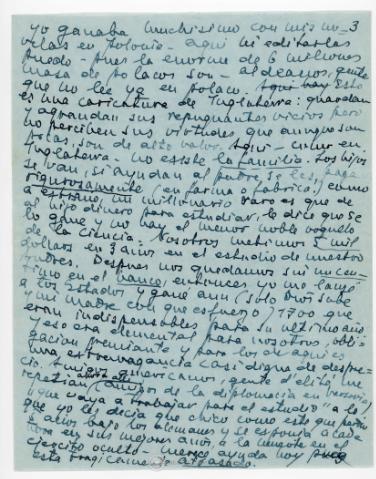 3
yo ganaba muchisimo con mis no-
velas en Polonia - aqui ni editarlas
puedo - pues la enorme de 6 milliones
masa de polacos son - aldeanos, gente
que no lee ya en polaco. Aqui hay esto
es una caricatura de Inglaterra: guardan
y agrandan sus repugnantes vicios pero
no perciben sus virtudes que aunque son
pocas, son de alto valor. Aqui - como en
Inglaterra - no existe la familia. Los hijos
se van, si ayudan al padre se les paga
rigurosamente (en farma o fabrica) como
a extraño, un millonario raro es que de
al hijo dinero para estudiar, le dice que se
lo gane y no hay el menor noble
de la ciencia. Nosotros metimos 5 mil
dollars en 3 anos en el estudio de nuestro
Andres. Despues nos quedamos sin un cen-
timo en el banco, entonces yo me lancé
a los Estados y gané aun (solo Dios sabe
y mi madre con que esfuerzo) 1700 que
eran indispensables para su ultimo año
y eso era elemental para nosotros, obli-
gacion premiante y para los de aqui es
una extravagancia casi digna de despre-
cio. Amigos americanos, gente d'elite, me
repetian (amigos de la diplomacia en Varsovia)
"que vaya a trabajar para el estudio" a lo
que yo les decia que chico como este que
5 años bajo los alemanes y se exponia a cada
hora en sus mejores anos, a la muerte en el
ejercito oculto - merece ayuda hoy pues
esta tragicamente atrasado.